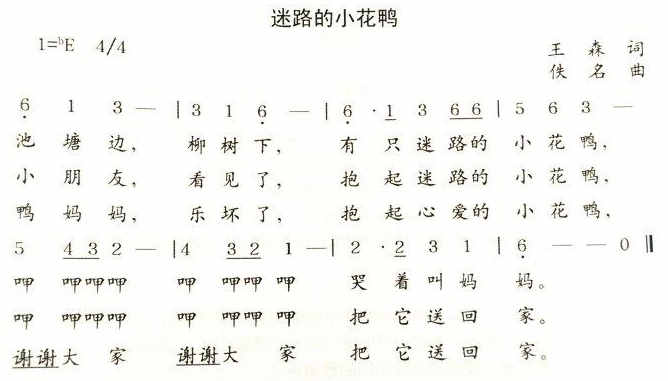 迷路的小花鸭
1=ᵇE 4/4
王森词
佚名曲
6̣ 1 3 — | 3 1 6̣ — | 6̣ · 1 3 6 6 | 5 6 3 —
池塘边, 柳树下, 有只迷路的小花鸭,
小朋友, 看见了, 抱起迷路的小花鸭,
鸭妈妈, 乐坏了, 抱起心爱的小花鸭,
5 4 3 2 — | 4 3 2 1 — | 2 · 2 3 1 | 6̣ — — 0 ‖
呷 呷呷呷 呷 呷呷呷 哭着叫妈妈。
呷 呷呷呷 呷 呷呷呷 把它送回家。
谢谢大家 谢谢大家 把它送回家。